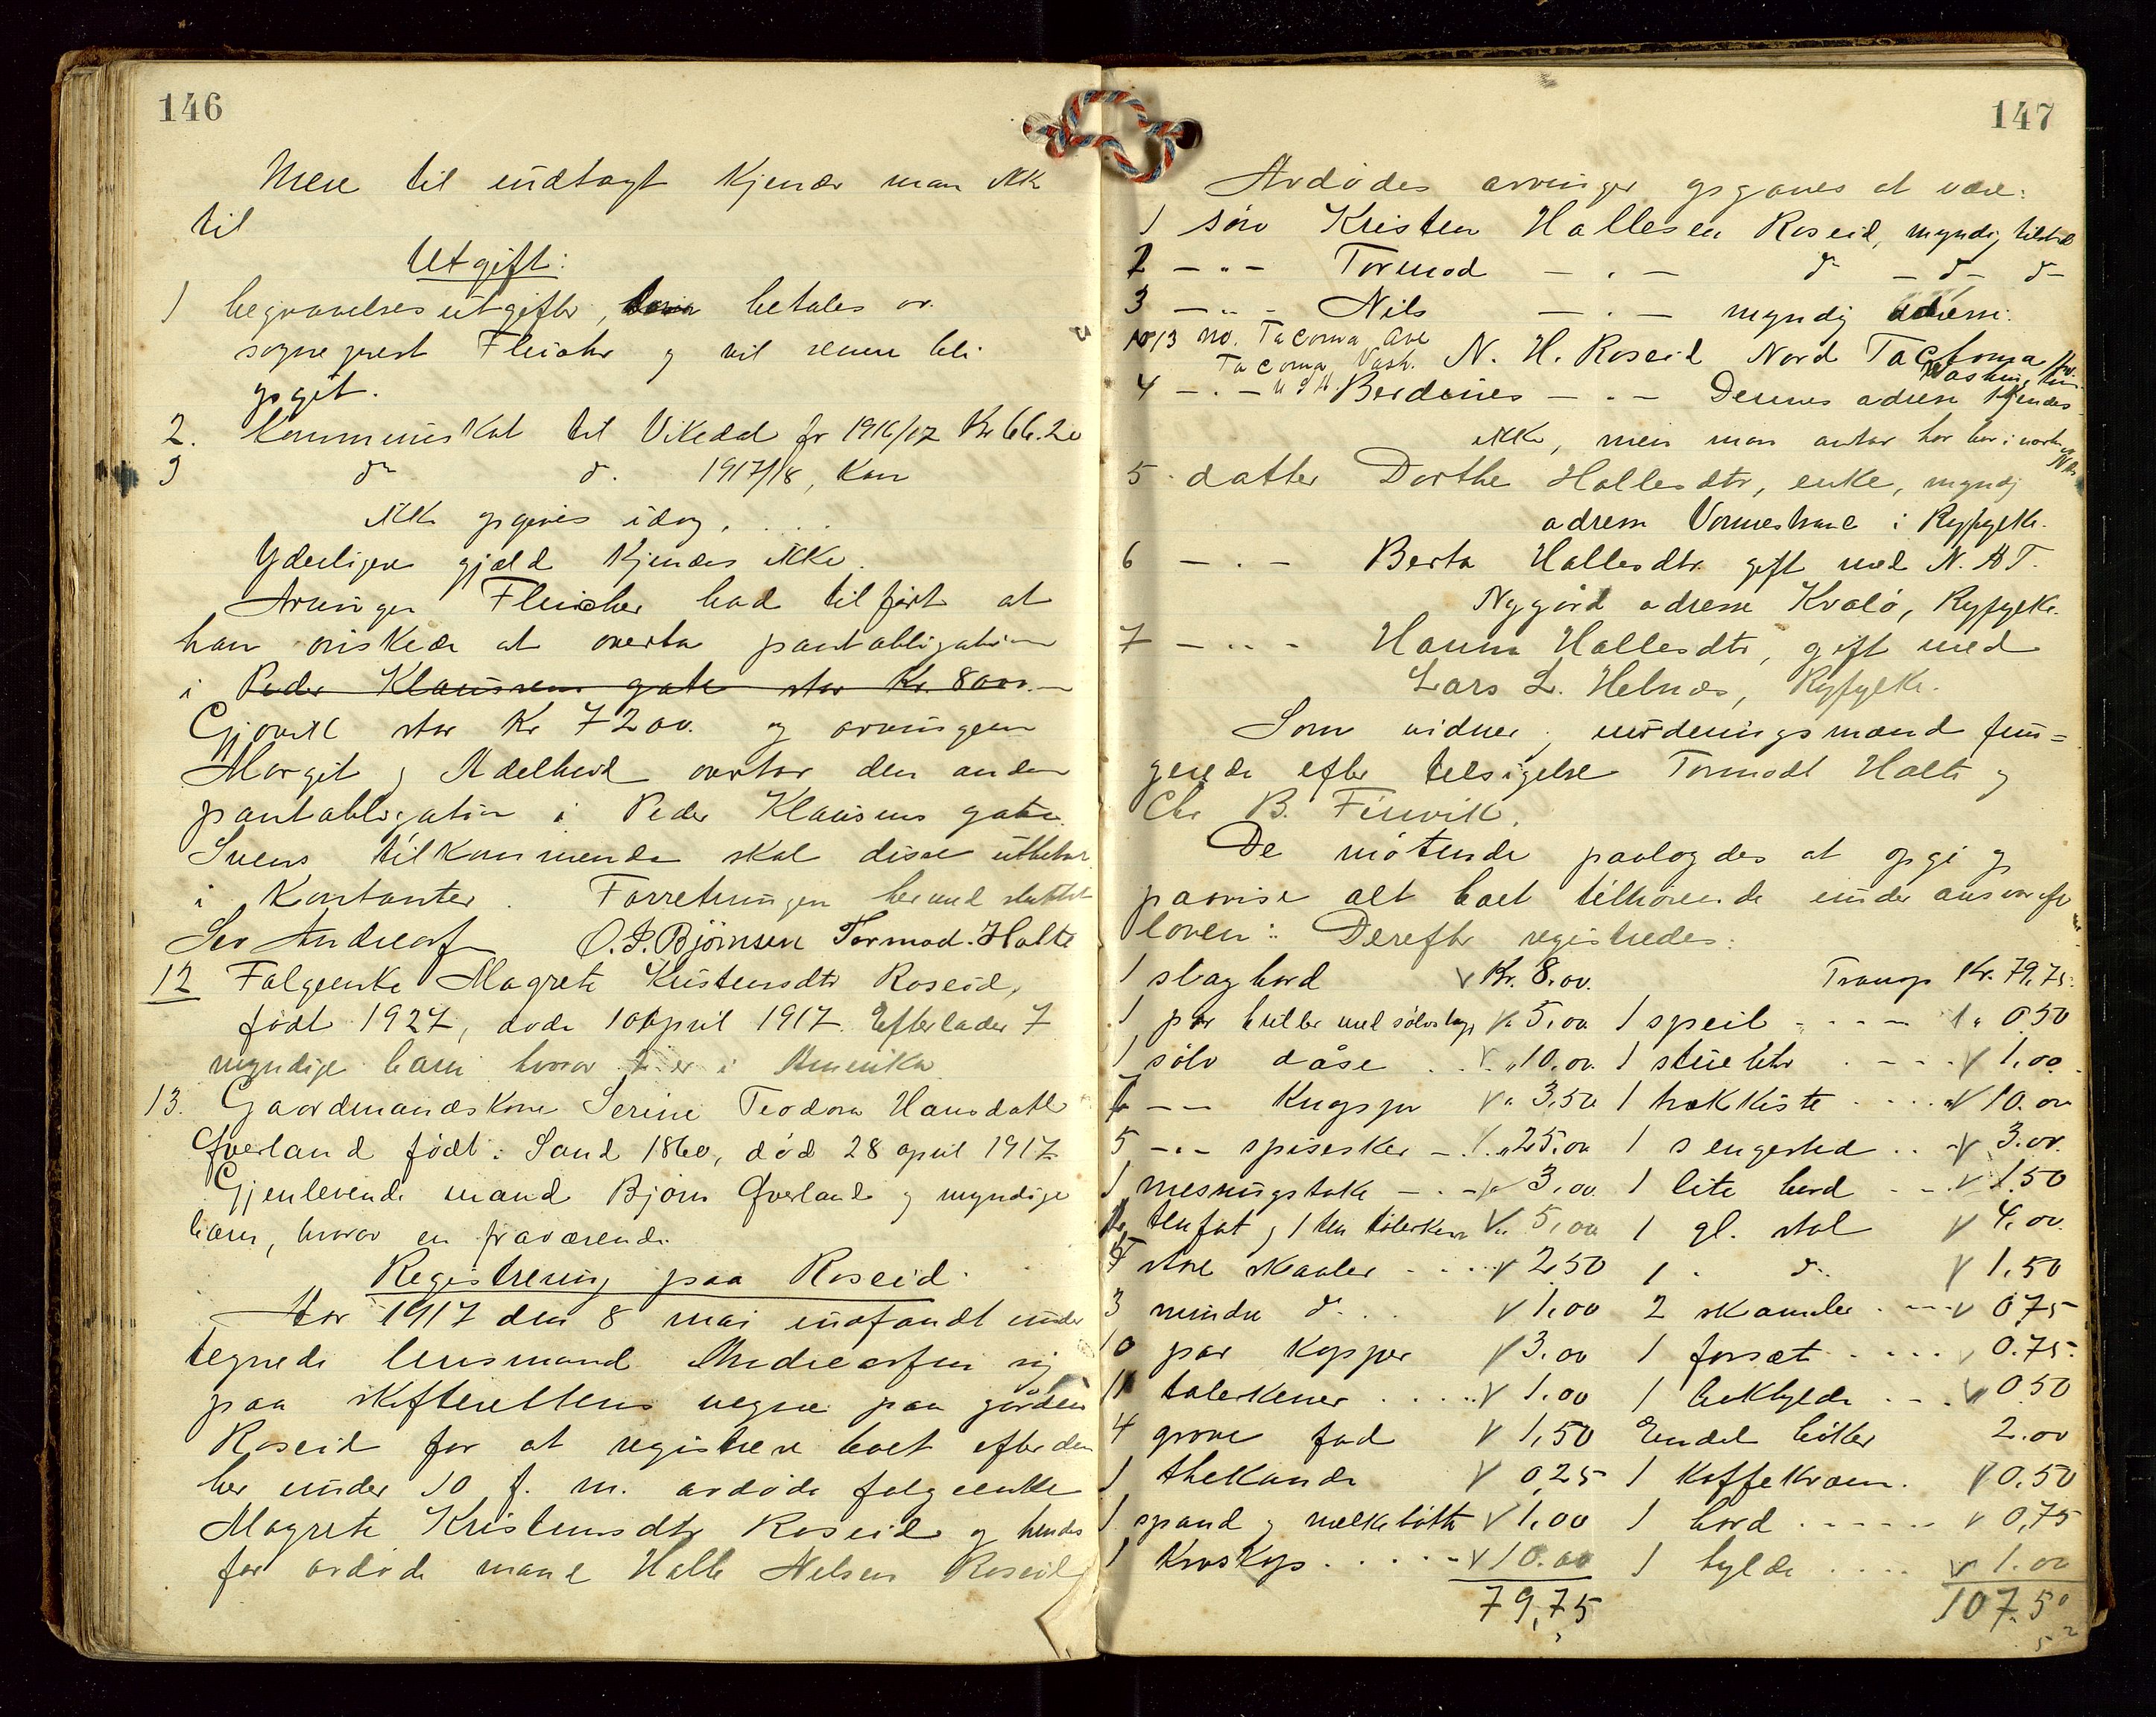 146
Mere til indtægt kjender man ikke
til
Utgift:
1 begravelsesutgifter, betales av
sogneprest Fleischer og vil senere bli
opgit.
2. Kommuneskat til Vikedal for 1916/17 Kr 66.20
3 do d. 1917/18, kan
ikke opgives idag. . . . .
Yderligere gjæld kjendes ikke.
Arvingen Fleischer bad tilført at
han ønsker at overta pantobligation
i Peder Klausens gate stor Kr. 8000.-
Gjøvik stor Kr 7200. og arvingen
Margit og Adelheid overtar den anden
pantobligation i Peder Klausens gate.
Svens tilkommende skal disse utbetale
i kontanter. Forretningen hermed sluttet
Sev Andreasf O. J. Bjørnsen Tormod. Halte
12 Følgeenke Magrete Kristensdtr Roseid,
født 1927, døde 10 april 1917. Efterlader 7
myndige barn hvorav 2 er i Amerika
13. Gaardmandskone Serine Teodora Hansdatter
Øverland født i Sand 1860, død 28 april 1917
Gjenlevende mand Bjørn Øverland og myndige
barn, hvorav en fraværende.
Registrering paa Roseid.
Aar 1917 den 8 mai indfandt under
tegnede lensmand Andreassen sig
paa skifterettens vegne paa gården
Roseid for at registrere boet efter den
her under 10 f. m. avdøde følgeenke
Magrete Kristensdtr Roseid og hendes
før avdøde mand Halle Nelsen Roseid
147
Avdødes arvinger opgaves at være:
1 søn Kristen Hallesen Roseid, myndig, tilsted
2 - " - Tormod - . - do - d - d -
3 - " - Nils - . - myndig adresse:
1013 no. Tacoma Ave
Tacoma, Vash. N. H. Roseid Nord Tactoma Av.
Washington
4 - . - U S A. Berdines - . - Dennes adresse kjendes
ikke, men man antar han bor i nærh.
Nils
5 datter Dorthe Hallesdtr, enke, myndig
adresse Vormestrand i Ryfylke.
6 - . - Berta Hallesdtr. gift med N. A T.
Nygård adresse Kvalø, Ryfylke.
7 - . . - Hanna Hallesdtr, gift med
Lars L. Helnæs, Ryfylke.
Som vidner og vurderingsmænd fun=
gerede efter tilsigelse Tormodt Halte og
Chr B. Finvik.
De møtende paalagdes at opgi og
paavise alt boet tilhørende under ansvar efter
loven: Derefter registredes:
1 slagbord v Kr. 8.00. Transp Kr. 79,75.
1 par briller med sølvstag v " 5,00 1 speil - - - - 1 " 0.50
1 sølv dåse . . v. " 10.00. 1 stuebthr . - - . v 1,00.
6 - - Kugspr v " 3,50 1 trækkiste . . . . v 10.00
5 - . - spiseskeer - . 1. " 25,00 1 sengested . . v 3.00.
1 mesingstake - . - v 3,00. 1 lite bord - - . v 1.50
2 tenfat og 1 ten talerken v " 5,00 1 gl. stol v 4,00.
4 store skaaler - . . . v 2,50 1 . do. v 1,50
3 mindre d. . . v 1,00 2 skamler . - - v 0,75
10 par kopper v 3.00 1 forsæt . . . . v 0.75.
11 talerkener . . . . v 1.00 1 bokhylde . - . v 0.50
4 grove fad v 1,50 Endel bøker 2.00
1 thekande v 0,25 1 kaffekværn. v 0,50
1 spand og melkebøtte v 1,00 1 bord . . - - - . . v 0,75
1 kruskop . . . . . v 10.00 1 hylde . . . . v 1.00
79,75 107.50